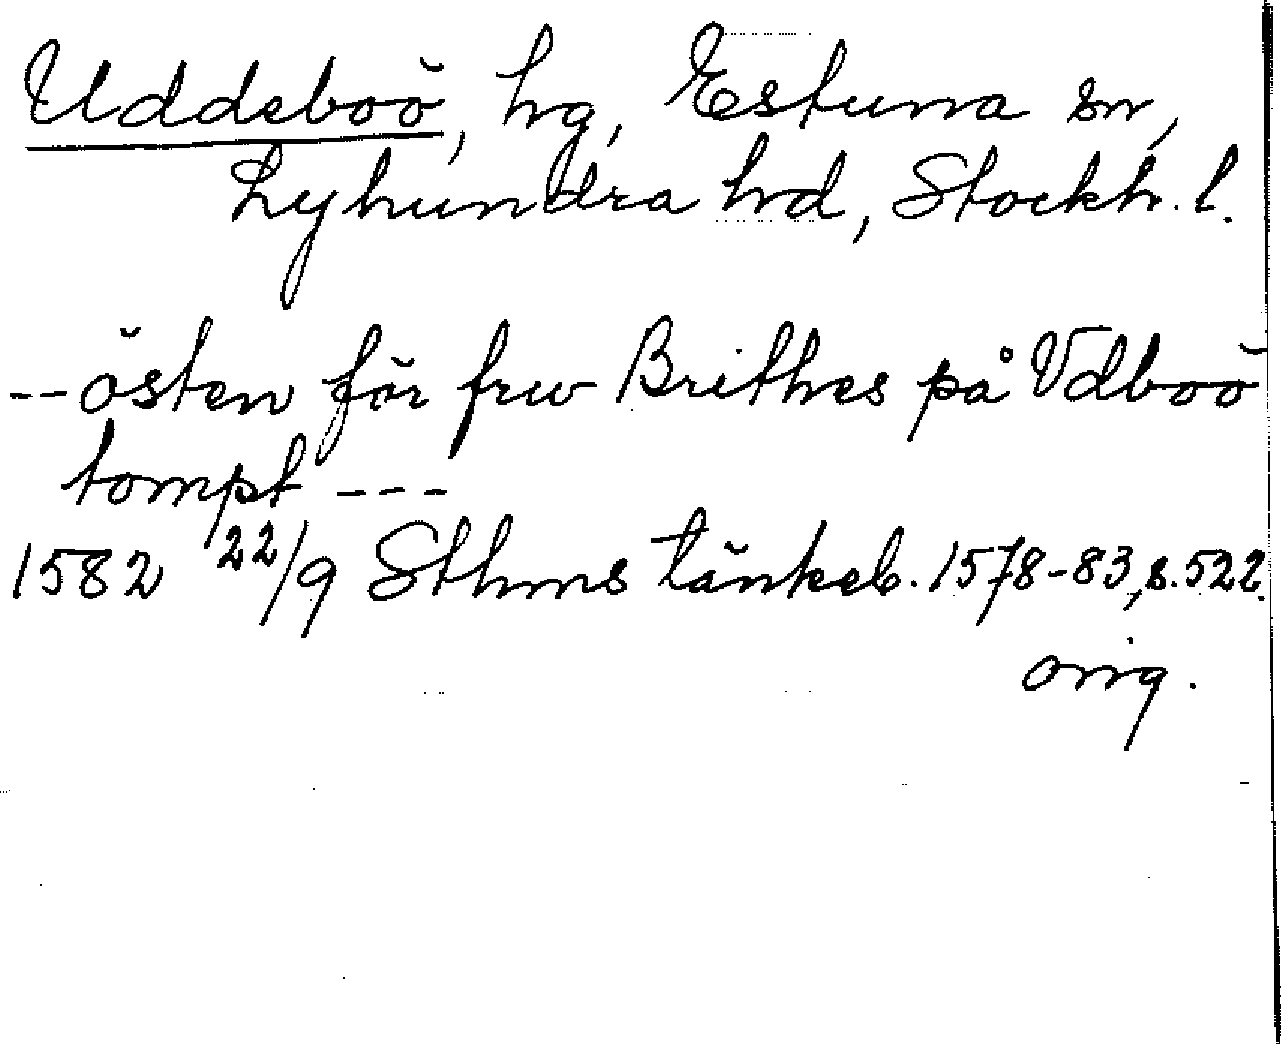 Uddeboö, hg, Estuna sn,
Lyhundra hd, Stockh. l.
--östen för frw Brithes på Vdboö
tompt ---
1582 22/9 Sthms tänkeb. 1578-83, s. 522.
orig.